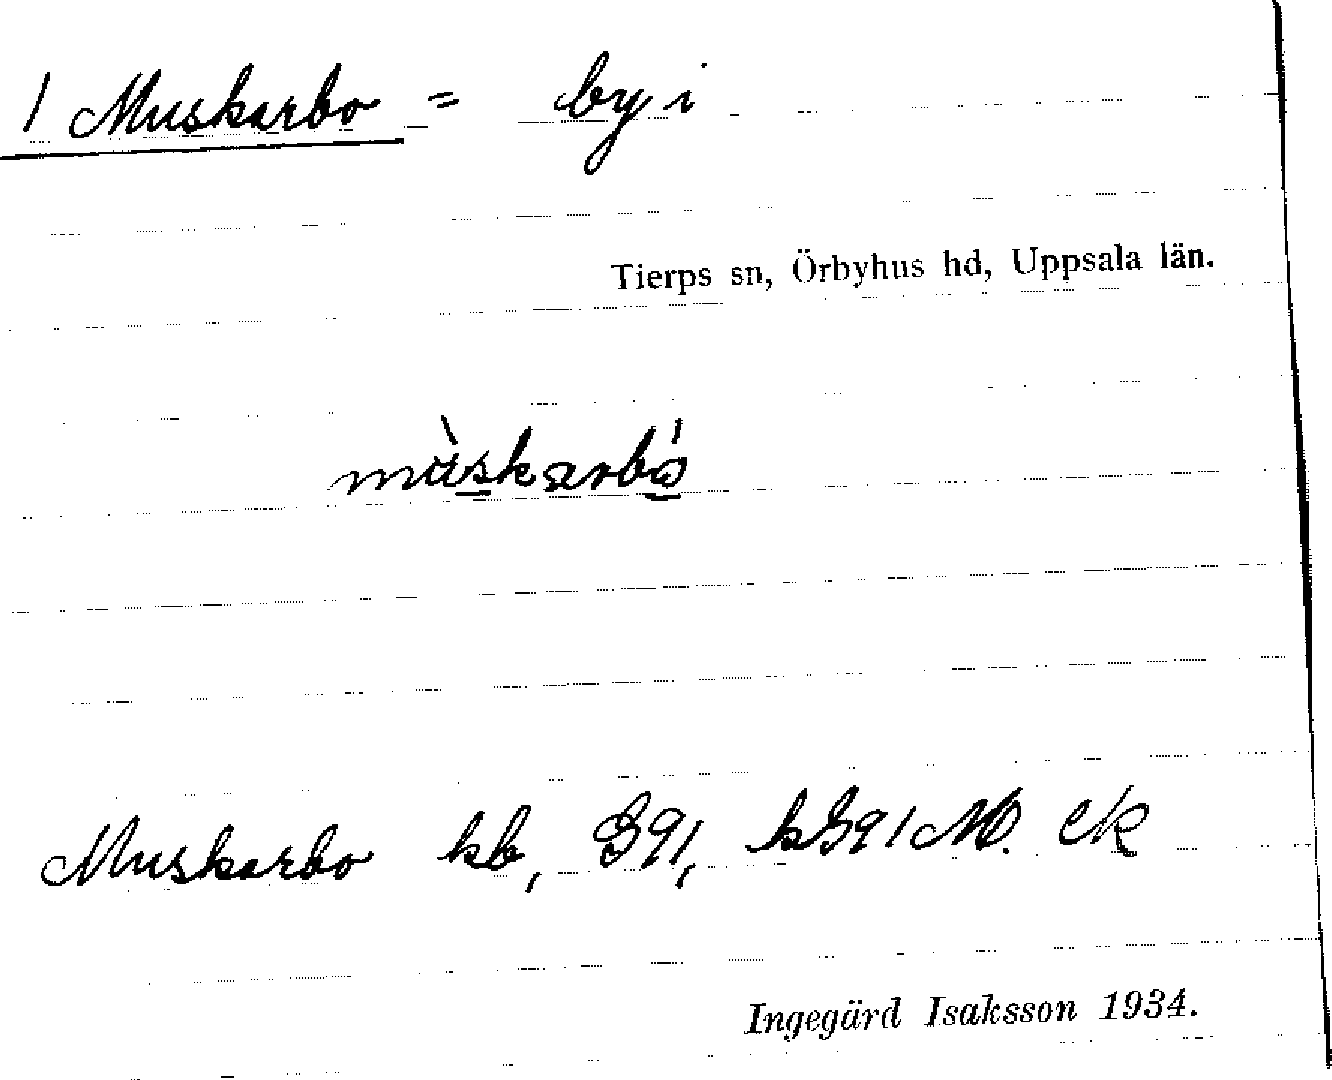 1 Muskarbo = by i
Tierps sn, Örbyhus hd, Uppsala län.
mùskarbó
Muskarbo kb, G91, kG91 M. ek
Ingegärd Isaksson 1934.